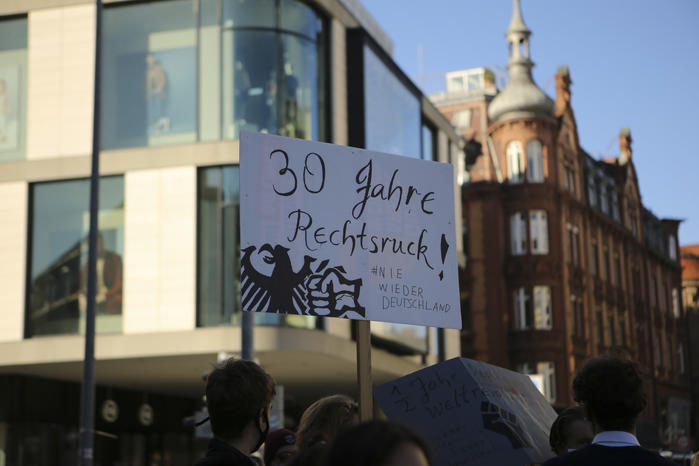 30 Jahre
Rechtsruck!
#NIE
WIEDER
DEUTSCHLAND
1 Jahr
2 Weltre